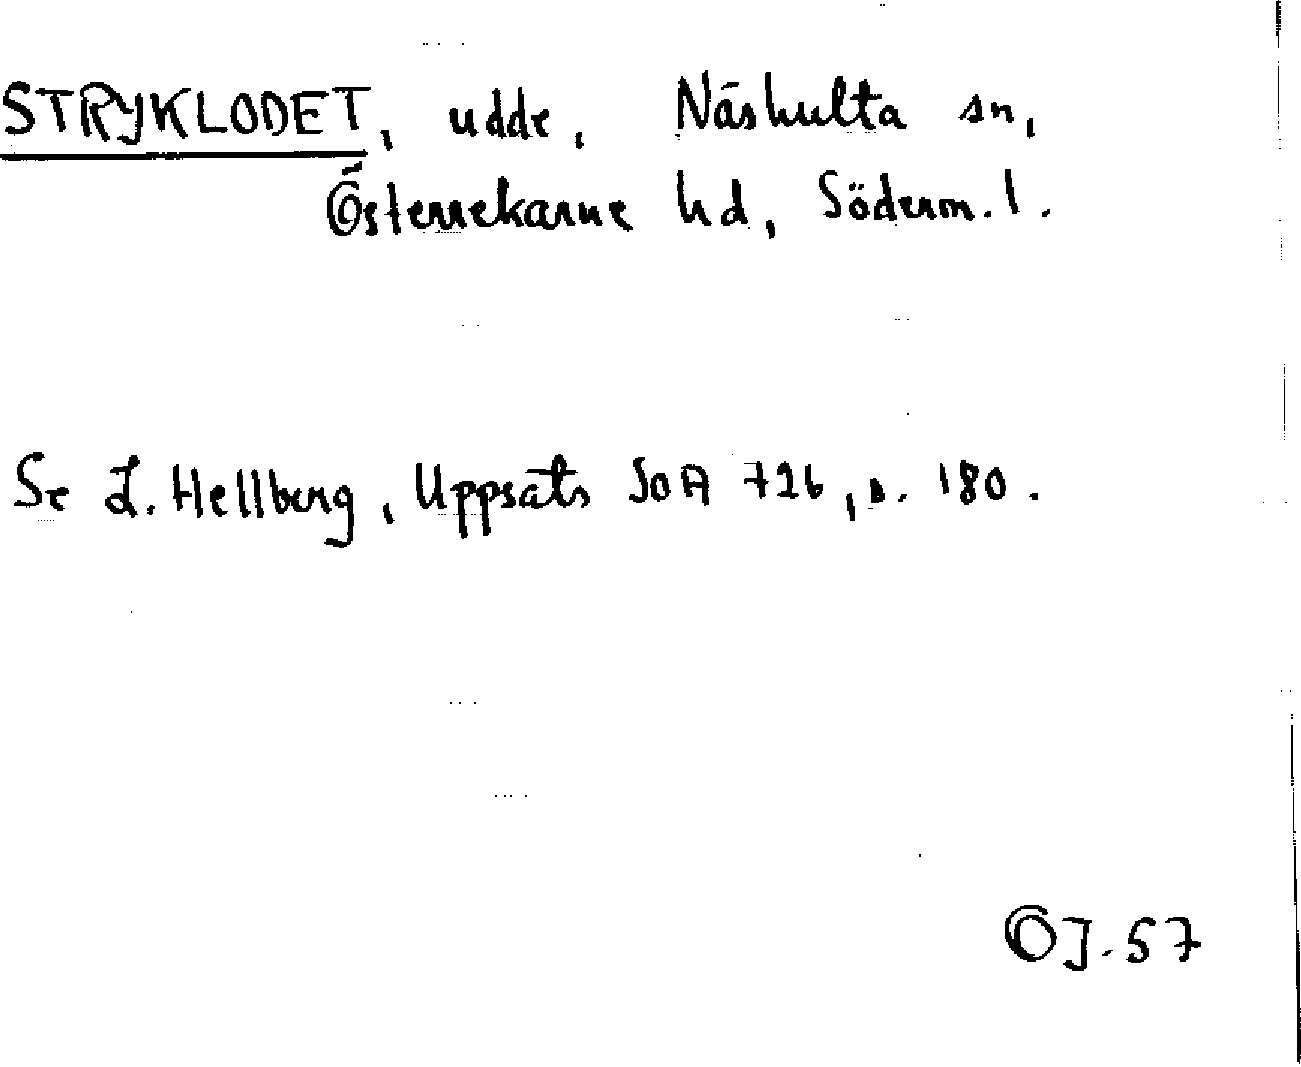 STRYKLODET, udde, Näshulta sn,
Österrekarne hd, Söderm. l.
Se L. Hellberg, Uppsats SOA 726, s. 180.
OJ. 57